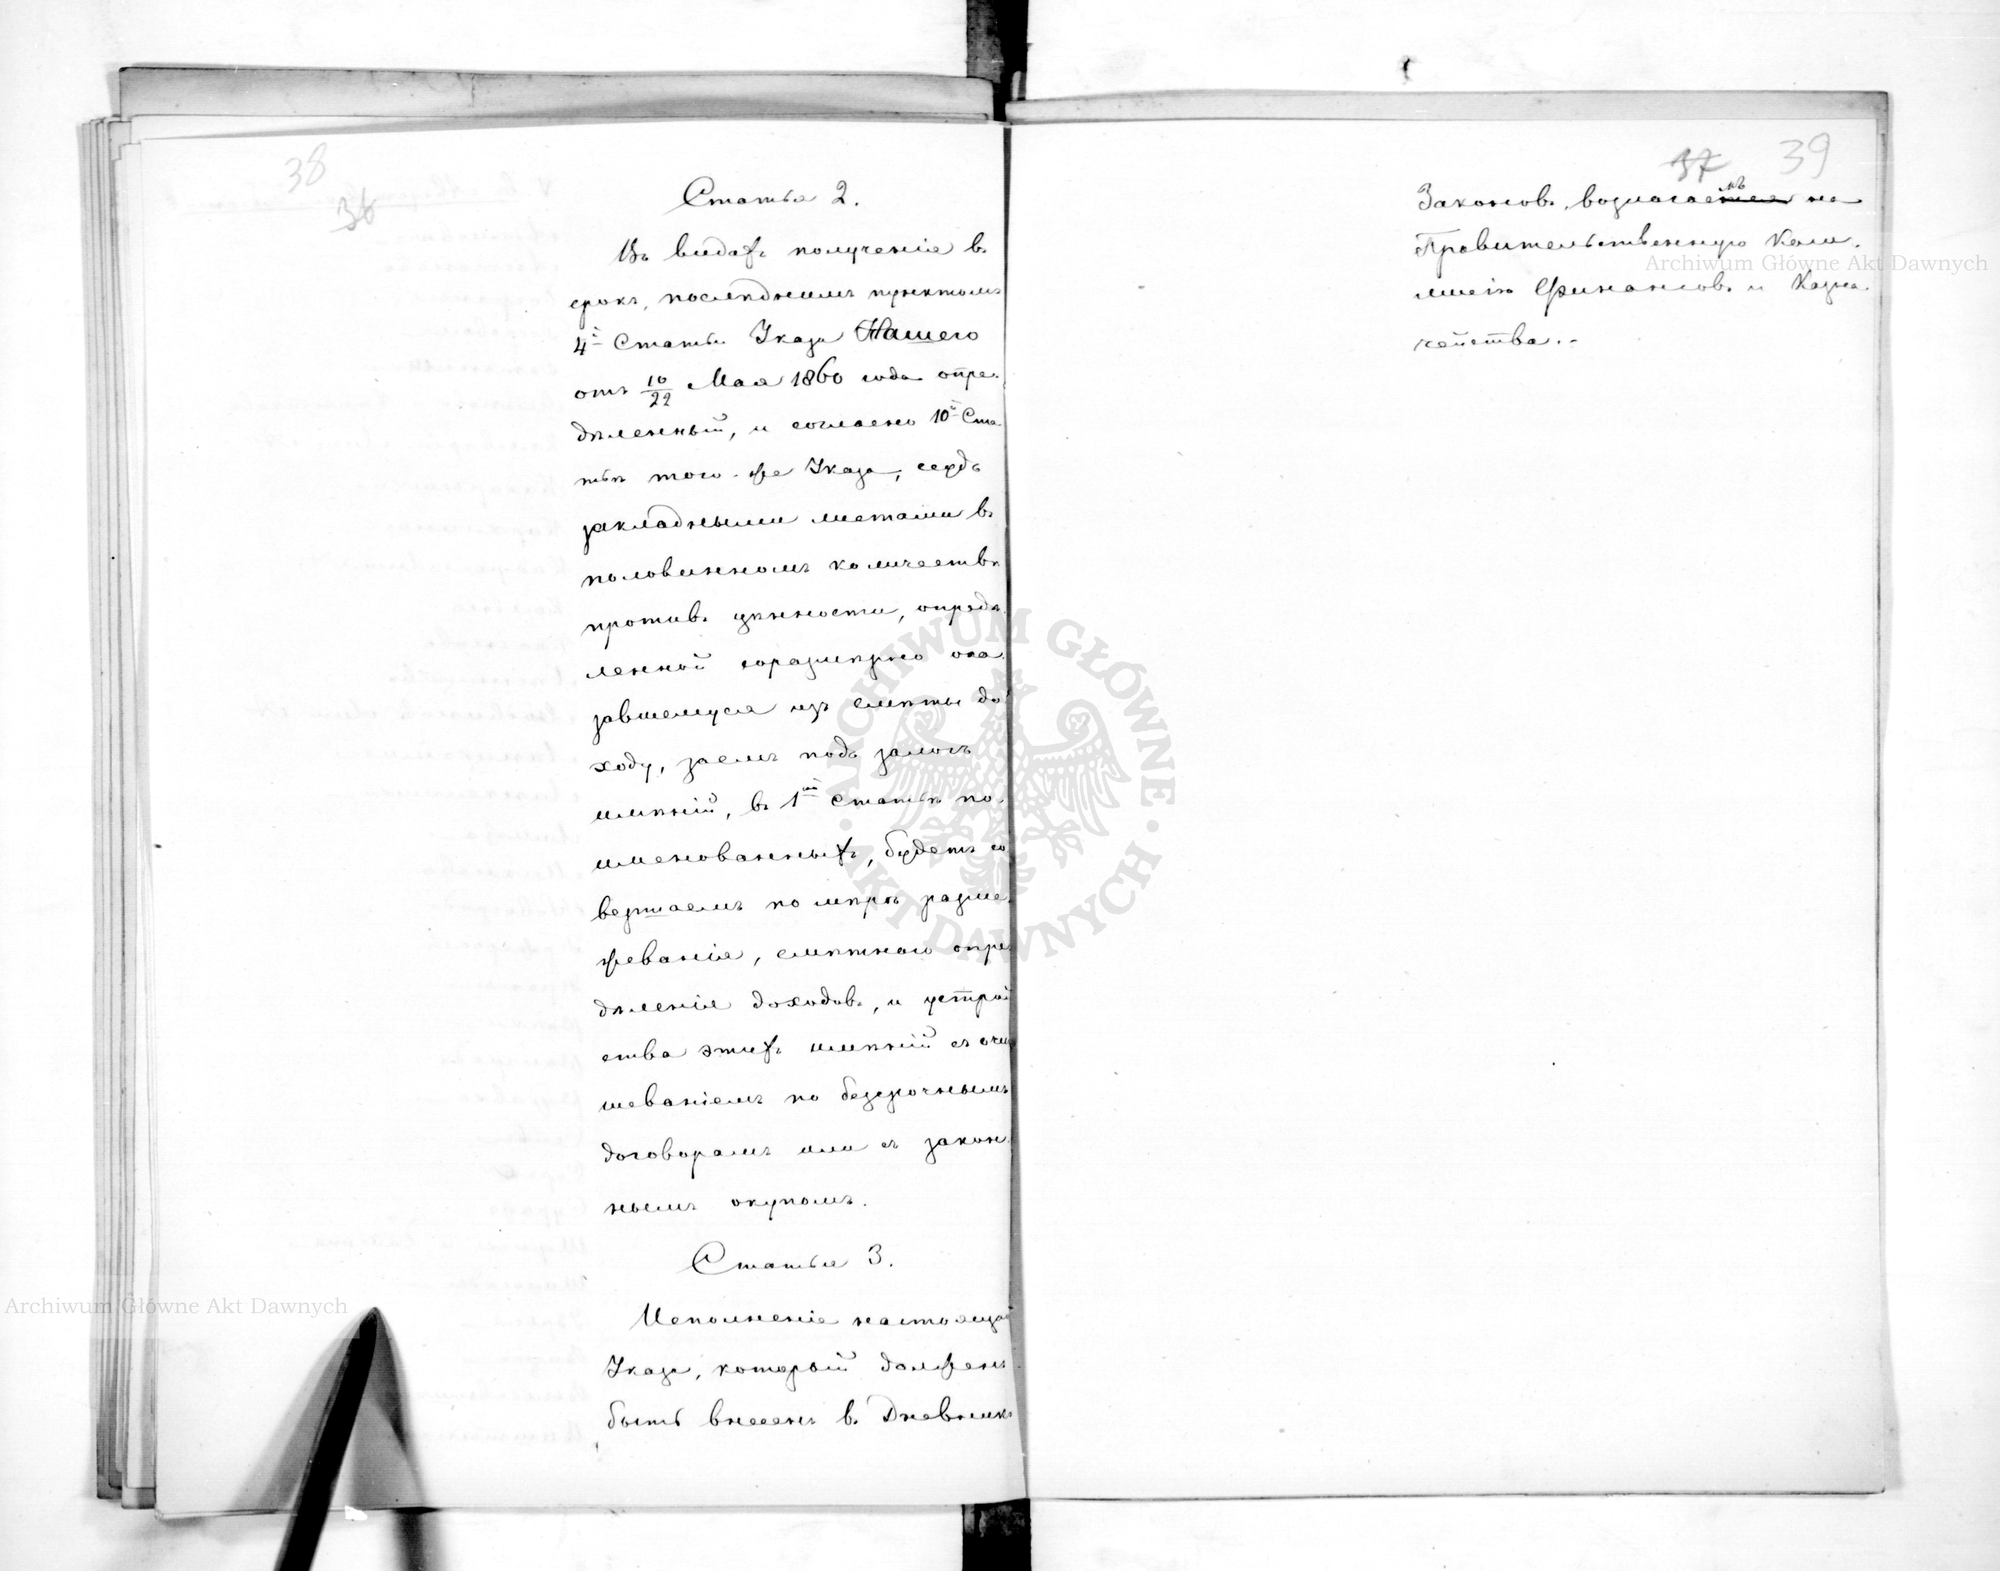 38
36
Статья 2.
Въ видахъ полученія въ
срокъ, послѣднимъ пунктомъ
4й Статьи Указа Нашего
отъ 10/22 Мая 1860 года опре-
дѣленный, и согласно 10й Ста-
тьѣ того-же Указа, ссудъ
закладными листами въ
половинномъ количествѣ
противъ цѣнности, опредѣ-
ленной соразмѣрно ока-
завшемуся изъ смѣты до-
ходу, заемъ подъ залогъ
имѣній, въ 1ой Статьѣ по-
именованныхъ, будетъ со
вершаемъ по мѣрѣ разме-
жеванія, смѣтнаго опре
дѣленія доходовъ, и устрой
ства этихъ имѣній съ очин
шеваніемъ по безсрочнымъ
договорамъ или съ закон-
нымъ окупомъ.
Статья 3.
Исполненіе настоящаго
Указа, который долженъ
быть внесенъ въ Дневникъ
37 39
Законовъ, возлагаемъ на
Правительственную Ком-
мисію Финансовъ и Казна-
чейства.-
Archiwum Główne Akt Dawnych
Archiwum Główne Akt Dawnych
ARCHIWUM GŁÓWNE · AKT DAWNYCH ·